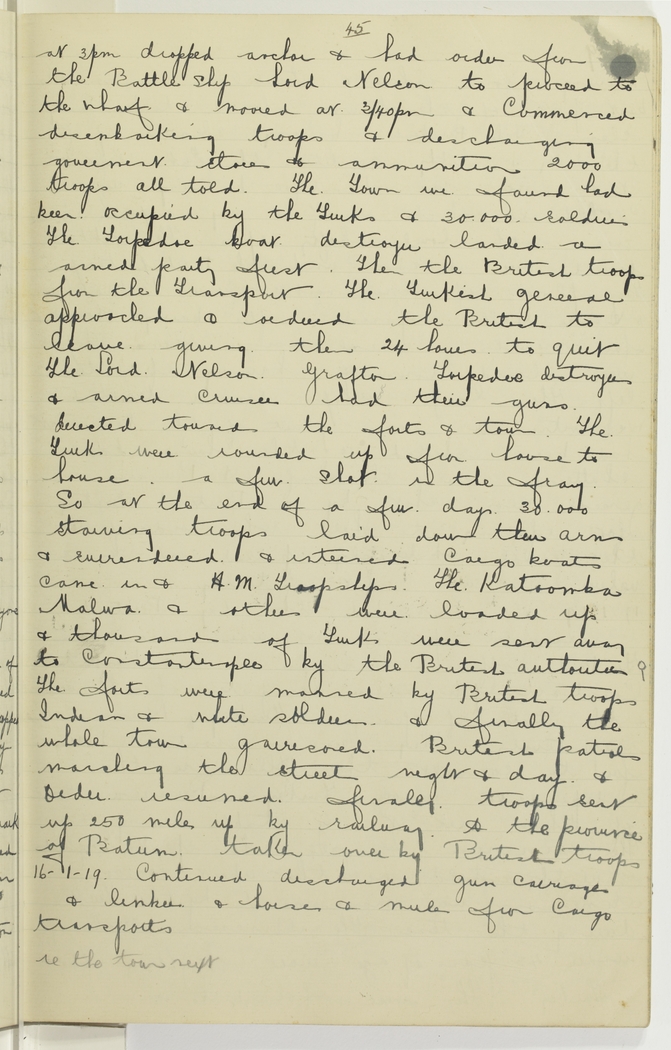 45
at 3pm dropped anchor & had order from
the Battle Ship Lord Nelson to proceed to
the wharf & moored at 3/40pm & Commenced
disembarking troops & descharging
government stores & ammunition 2000
troops all told. The Town we found had
been occupied by the Turks & 30.000. soldiers
The Torpedoe boat destroyer landed a
armed party first. Then the British troops
from the Transport. The Turkish general
approached & ordered the British to
leave giving them 24 hours to quit
The Lord. Nelson. Grafton. Torpedoe destroyers
& armed Cruiser had their guns.
directed towards the forts & town. The.
Turks were rounded up from house to
house. a few shot in the fray.
So at the end of a few days 30.000
starving troops laid down their arms
& surrendered. & interned Cargo boats
came in & H.M. Troopships. The Katoomba
Malwa. & others were loaded up
& thousands of Turks were sent away
to Constantinople by the British authorities
The forts were manned by British troops
Indian & white soldiers. & finally the
whole town garrisoned. British patrols
marching the street night & day. &
Order resumed. finaley. troops sent
up 250 miles up by railway. & the province
of Batum. taken over by British troops
16-1-19. Continued discharged gun carriages
& limbers & horses & mules from Cargo
transports
in the town next